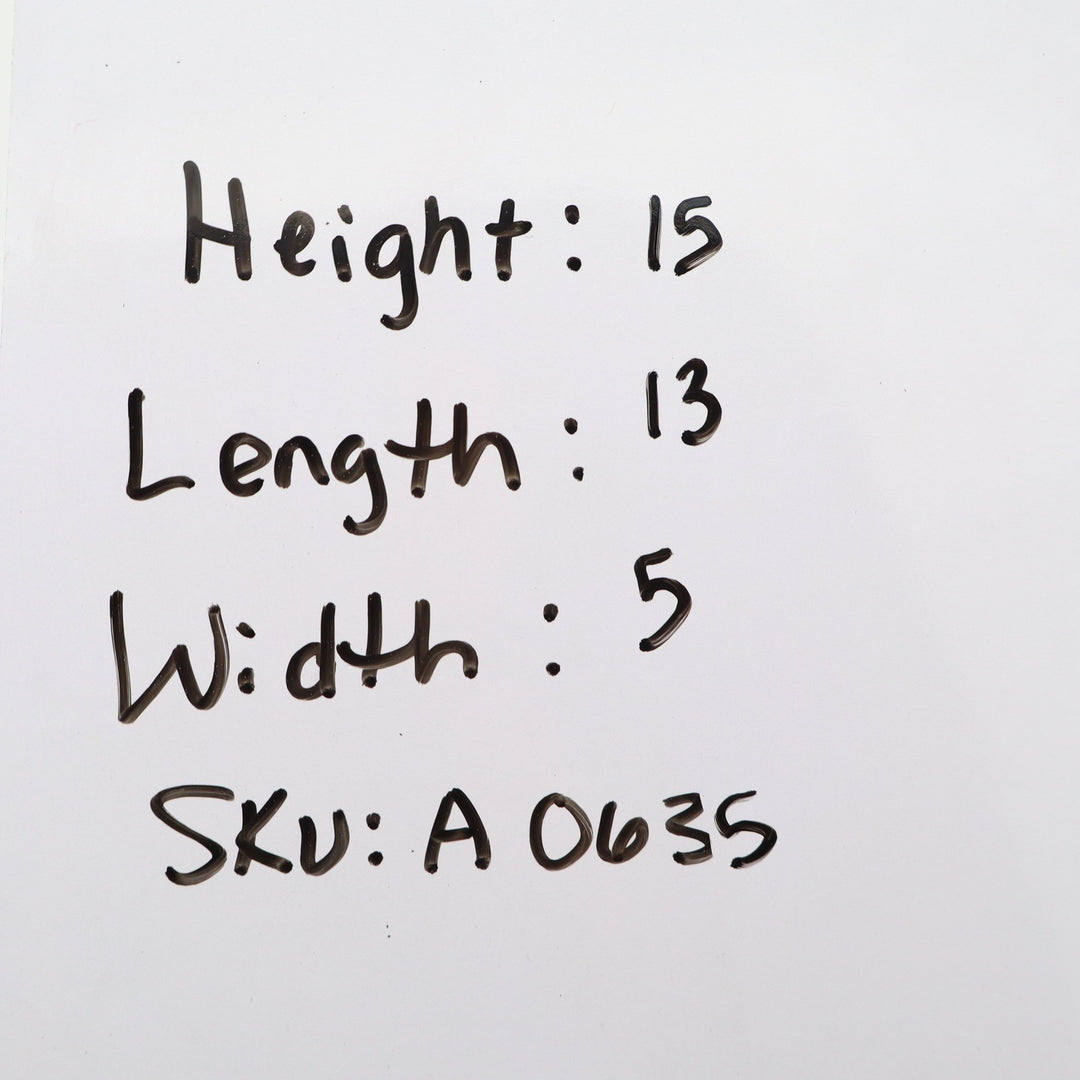 Height: 15
Length: 13
Width: 5
SKU: A 0635